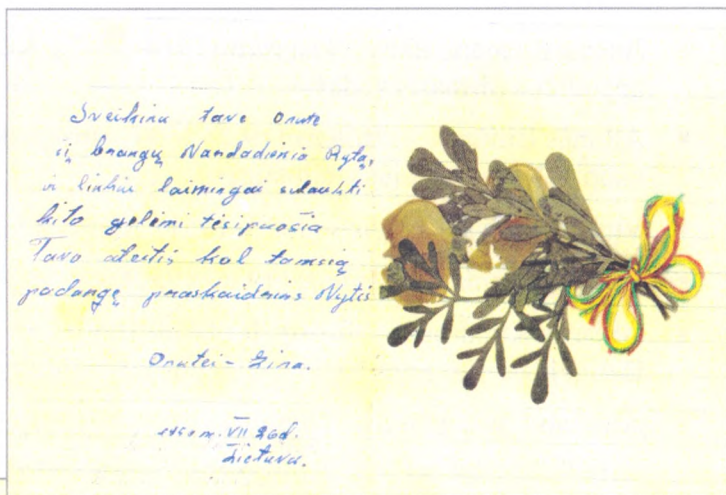 Sveikinu tave Onute
šį brangų Vardadienio Rytą,
ir linkiu laimingai sulaukti
kito gėlėmi tesipuošia
Tavo ateitis kol tamsią
padangę praskaidrins Vytis
Onutei – Zina.
m. VII 26d.
Lietuva.